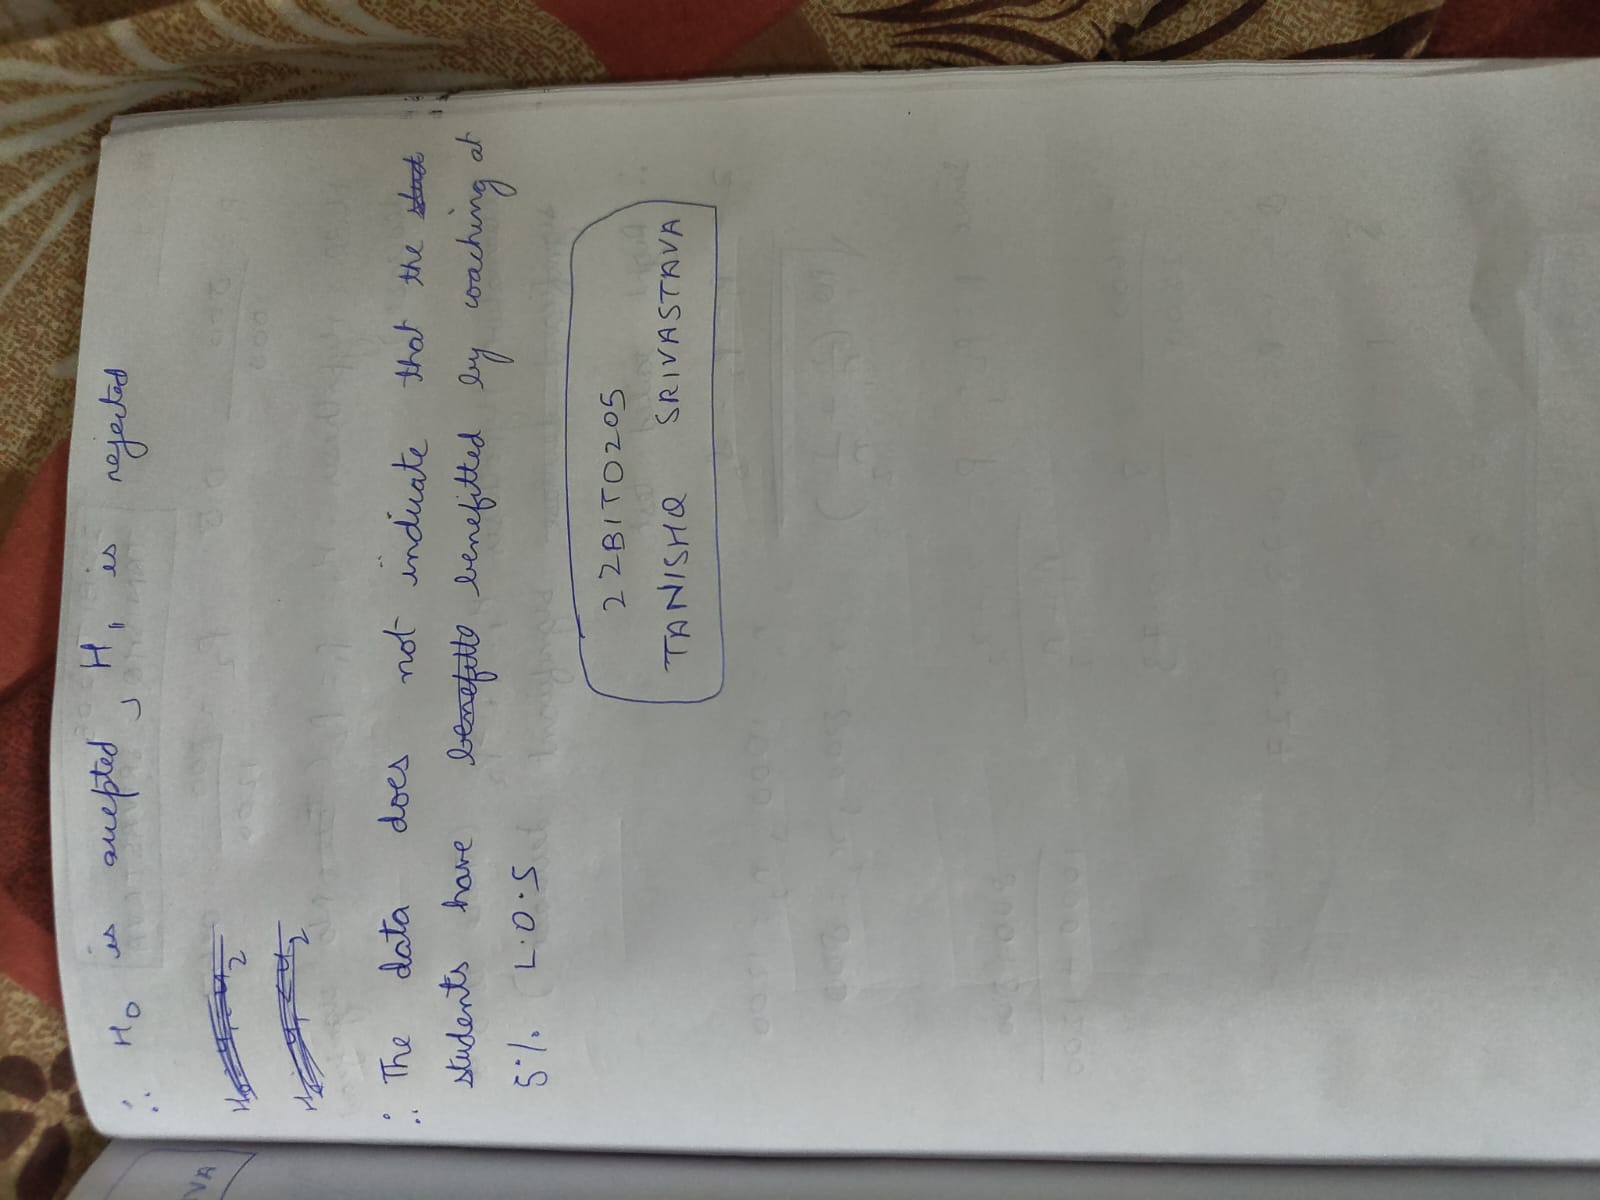 ∴ H₀ is accepted, H₁ is rejected
∴ The data does not indicate that the
students have benefitted by coaching at
5% L.O.S
22BIT0205
TANISHQ SRIVASTAVA
VA